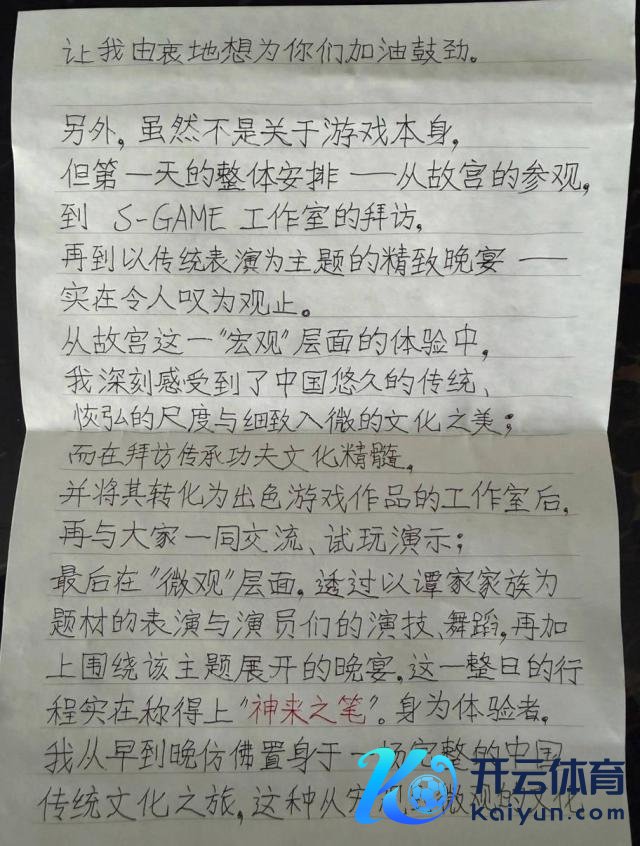 让我由衷地想为你们加油鼓劲。
另外，虽然不是关于游戏本身，
但第一天的整体安排 —— 从故宫的参观，
到 S-GAME 工作室的拜访，
再到以传统表演为主题的精致晚宴 ——
实在令人叹为观止。
从故宫这一“宏观”层面的体验中，
我深刻感受到了中国悠久的传统、
恢弘的尺度与细致入微的文化之美；
而在拜访传承功夫文化精髓，
并将其转化为出色游戏作品的工作室后，
再与大家一同交流、试玩演示；
最后在“微观”层面，透过以谭家家族为
题材的表演与演员们的演技、舞蹈，再加
上围绕该主题展开的晚宴，这一整日的行
程实在称得上“神来之笔”。身为体验者，
我从早到晚仿佛置身于一场完整的中国
传统文化之旅，这种从宏观到微观的文化
开云体育
Kaiyun.com